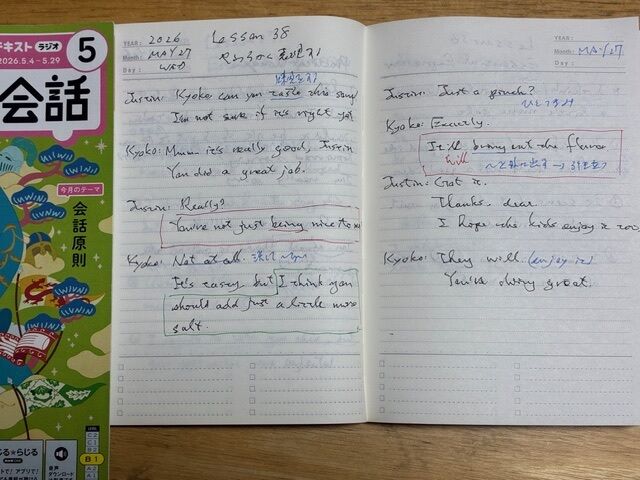 テキスト ラジオ 5
2026.5.4~5.29
会話
今月のテーマ
会話原則
LEVEL
C2
C1
B2
B1
A2
A1
音声
ダウンロード
YEAR: 2026
Month: MAY27
Day: WED
Lesson 38
Justin: Kyoko can you taste this soup
I'm not sure if it's right yet
Kyoko: Mmm it's really good, Justin
You did a great job.
Justin: Really?
You're not just being nice to me
Kyoko: Not at all.
It's tasty, but I think you
should add just a little more
salt.
YEAR:
Month: MAY27
Day:
Justin: Just a pinch?
ひとつまみ
Kyoko: Exactly.
It'll bring out the flavor
will
Justin: Got it.
Thanks, dear.
I hope the kids enjoy it too,
Kyoko: They will. (enjoy it)
You're doing great.